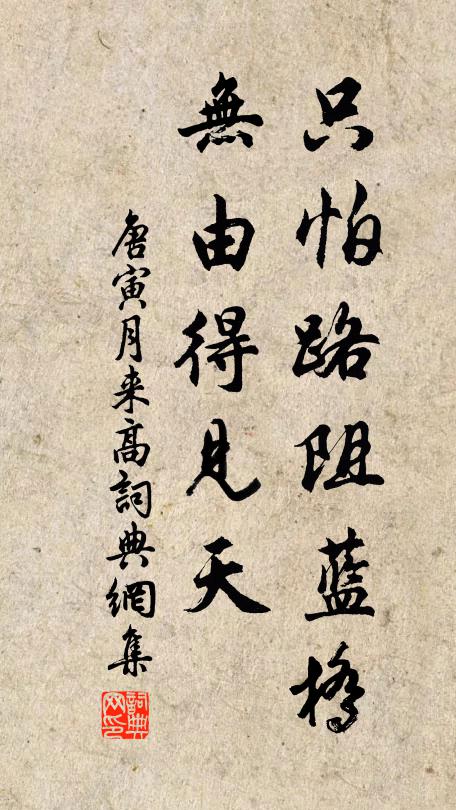 只怕路阻藍橋
無由得見天
唐寅月来高詞典網集
詞典網印